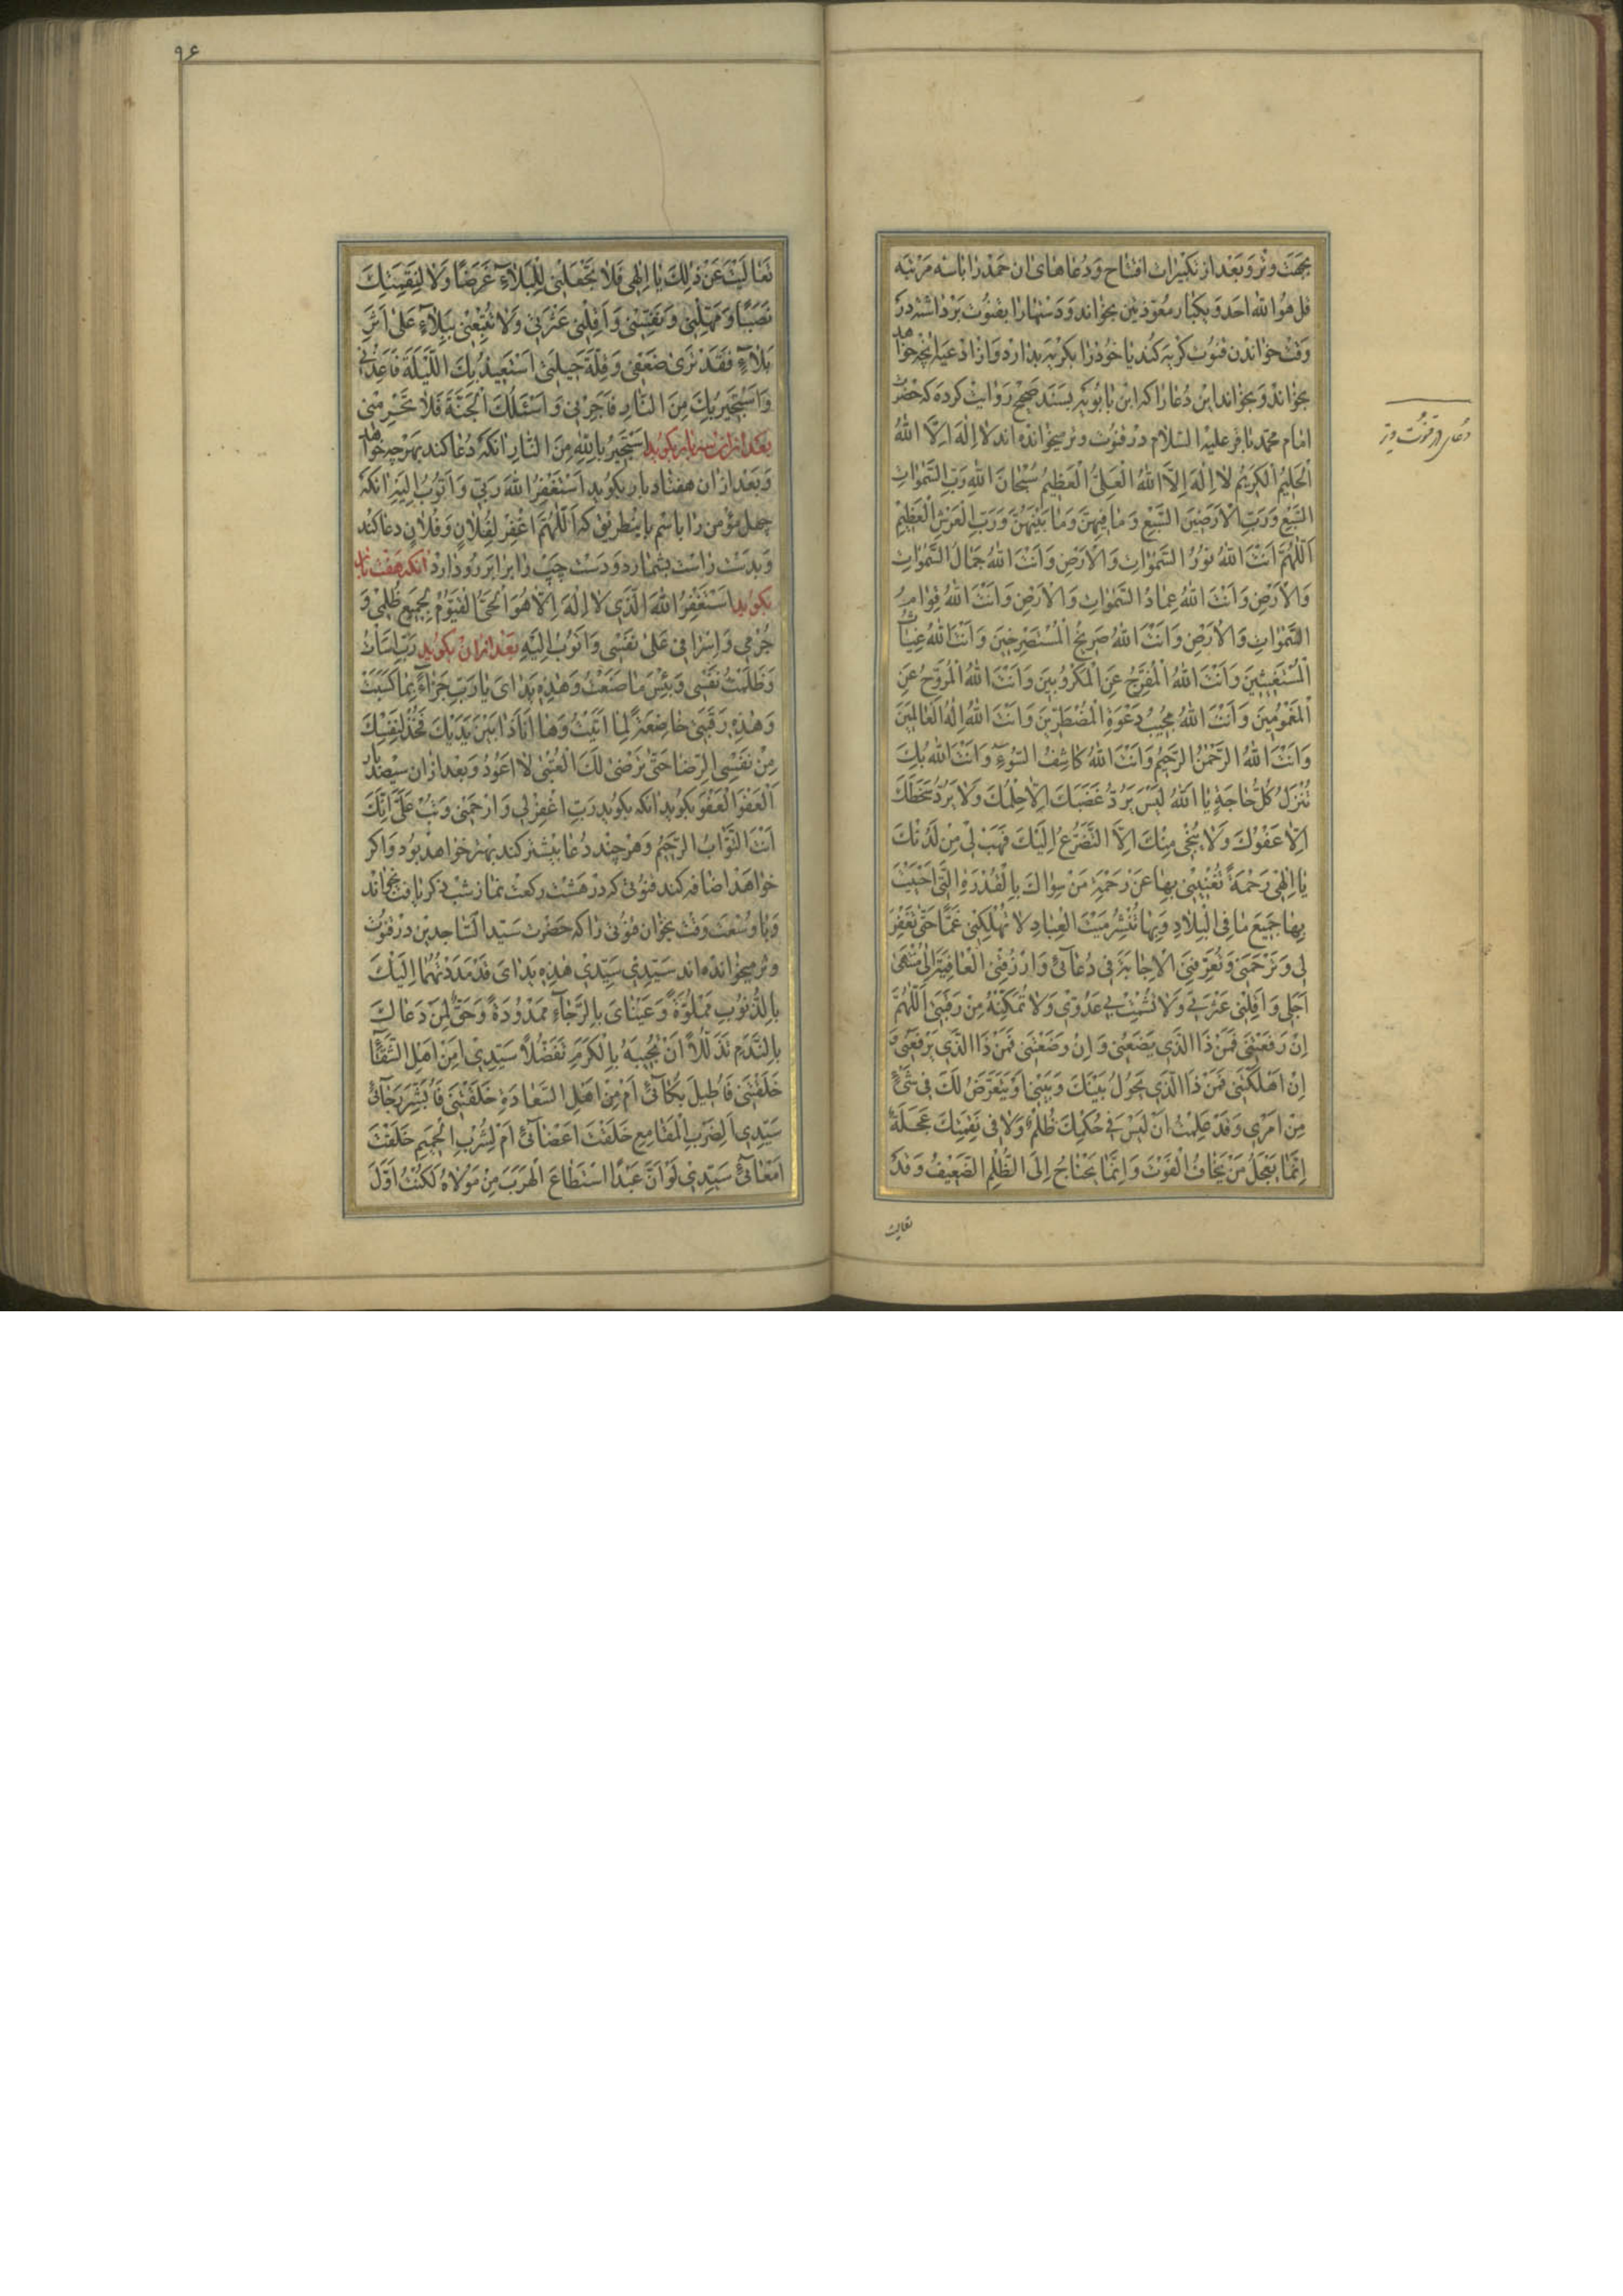 بجهت وتر و بعد از تکبیرات افتتاح و دعاهای آن حمد را با سه مرتبه
قل هو الله احد و یکبار معوذتین بخواند و دستها را بقنوت برداشته در
وقت خواندن قنوت گریه کند یا خود را بگریه بدارد و از ادعیه آنچه خواهد
بخواند و بخواند این دعا را که ابن بابویه بسند صحیح روایت کرده که حضرت
امام محمد باقر علیه السلام در قنوت وتر میخوانده‌اند لا اِلٰهَ اِلَّا اللهُ
الْحَلیمُ الْکَریمُ لا اِلٰهَ اِلَّا اللهُ الْعَلِیُّ الْعَظیمُ سُبْحانَ اللهِ رَبِّ السَّمٰواتِ
السَّبْعِ وَرَبِّ الْاَرَضینَ السَّبْعِ وَما فیهِنَّ وَما بَیْنَهُنَّ وَرَبِّ الْعَرْشِ الْعَظیمِ
اَللّٰهُمَّ اَنْتَ اللهُ نُورُ السَّمٰواتِ وَالْاَرْضِ وَاَنْتَ اللهُ جَمالُ السَّمٰواتِ
وَالْاَرْضِ وَاَنْتَ اللهُ عِمادُ السَّمٰواتِ وَالْاَرْضِ وَاَنْتَ اللهُ قِوامُ
السَّمٰواتِ وَالْاَرْضِ وَاَنْتَ اللهُ صَریخُ الْمُسْتَصْرِخینَ وَاَنْتَ اللهُ غِیاثُ
الْمُسْتَغیثینَ وَاَنْتَ اللهُ الْمُفَرِّجُ عَنِ الْمَکْرُوبینَ وَاَنْتَ اللهُ الْمُرَوِّحُ عَنِ
الْمَغْمُومینَ وَاَنْتَ اللهُ مُجیبُ دَعْوَةِ الْمُضْطَرّینَ وَاَنْتَ اللهُ اِلٰهُ الْعالَمینَ
وَاَنْتَ اللهُ الرَّحْمٰنُ الرَّحیمُ وَاَنْتَ اللهُ کاشِفُ السُّوءِ وَاَنْتَ اللهُ بِكَ
تُنْزَلُ کُلُّ حاجَةٍ یا اَللهُ لَیْسَ یَرُدُّ غَضَبَكَ اِلّا حِلْمُكَ وَلا یَرُدُّ سَخَطَكَ
اِلّا عَفْوُكَ وَلا یُنْجی مِنْكَ اِلَّا التَّضَرُّعُ اِلَیْكَ فَهَبْ لی مِنْ لَدُنْكَ
یا اِلٰهی رَحْمَةً تُغْنینی بِها عَنْ رَحْمَةِ مَنْ سِواكَ بِالْقُدْرَةِ الَّتی اَحْیَیْتَ
بِها جَمیعَ ما فِی الْبِلادِ وَبِها تَنْشُرُ مَیْتَ الْعِبادِ لا تُهْلِکْنی غَمًّا حَتّٰی تَغْفِرَ
لی وَتَرْحَمَنی وَتُعَرِّفَنِیَ الْاِجابَةَ فی دُعآئی وَارْزُقْنِی الْعافِیَةَ اِلٰی مُنْتَهٰی
اَجَلی وَاَقِلْنی عَثْرَتی وَلا تُشْمِتْ بی عَدُوّی وَلا تُمَکِّنْهُ مِنْ رَقَبَتی اَللّٰهُمَّ
اِنْ رَفَعْتَنی فَمَنْ ذَا الَّذی یَضَعُنی وَاِنْ وَضَعْتَنی فَمَنْ ذَا الَّذی یَرْفَعُنی وَ
اِنْ اَهْلَکْتَنی فَمَنْ ذَا الَّذی یَحُولُ بَیْنَكَ وَبَیْنی اَوْ یَتَعَرَّضُ لَكَ فی شَیْءٍ
مِنْ اَمْری وَقَدْ عَلِمْتُ اَنْ لَیْسَ فی حُکْمِكَ ظُلْمٌ وَلا فی نَقِمَتِكَ عَجَلَةٌ
اِنَّما یَعْجَلُ مَنْ یَخافُ الْفَوْتَ وَاِنَّما یَحْتاجُ اِلَی الظُّلْمِ الضَّعیفُ وَقَدْ
تعالیت
دعای در قنوت وتر
۹۶
تَعالَیْتَ عَنْ ذٰلِكَ یا اِلٰهی فَلا تَجْعَلْنی لِلْبَلآءِ غَرَضًا وَلا لِنَقِمَتِكَ
نَصَبًا وَمَهِّلْنی وَنَفِّسْنی وَاَقِلْنی عَثْرَتی وَلا تُتْبِعْنی بِبَلآءٍ عَلٰی اَثَرِ
بَلآءٍ فَقَدْ تَرٰی ضَعْفی وَقِلَّةَ حیلَتی اَسْتَعیذُ بِكَ اللَّیْلَةَ فَاَعِذْنی
وَاَسْتَجیرُ بِكَ مِنَ النّارِ فَاَجِرْنی وَاَسْئَلُكَ الْجَنَّةَ فَلا تَحْرِمْنی
بعد از آن سه بار بگوید اَسْتَجیرُ بِاللهِ مِنَ النّارِ آنکه دعا کند بهرچه خواهد
و بعد از آن هفتاد بار بگوید اَسْتَغْفِرُ اللهَ رَبّی وَاَتُوبُ اِلَیْهِ آنکه
چهل مؤمن را باسم باینطریق که اَللّٰهُمَّ اغْفِرْ لِفُلانٍ وَفُلانٍ دعا کند
و بدست راست بشمارد و دست چپ را برابر رو دارد آنکه هفت بار
بگوید اَسْتَغْفِرُ اللهَ الَّذی لا اِلٰهَ اِلّا هُوَ الْحَیُّ الْقَیُّومُ لِجَمیعِ ظُلْمی وَ
جُرْمی وَاِسْرافی عَلٰی نَفْسی وَاَتُوبُ اِلَیْهِ بعد از آن بگوید رَبِّ اَسَأْتُ
وَظَلَمْتُ نَفْسی وَبِئْسَ ما صَنَعْتُ وَهٰذِهِ یَدایَ یا رَبِّ جَزآءً بِما کَسَبَتْ
وَهٰذِهِ رَقَبَتی خاضِعَةً لِما اَتَیْتُ وَها اَنَا ذا بَیْنَ یَدَیْكَ فَخُذْ لِنَفْسِكَ
مِنْ نَفْسِی الرِّضا حَتّٰی تَرْضٰی لَكَ الْعُتْبٰی لا اَعُودُ و بعد از آن سیصد بار
اَلْعَفْوَ الْعَفْوَ بگوید آنکه بگوید رَبِّ اغْفِرْ لی وَارْحَمْنی وَتُبْ عَلَیَّ اِنَّكَ
اَنْتَ التَّوّابُ الرَّحیمُ و هر چند دعا بیشتر کند بهتر خواهد بود و اگر
خواهد اضافه کند قنوتی که در هشت رکعت نماز شب ذکر یافت بخواند
و با وسعت وقت بخوان قنوتی را که حضرت سید الساجدین در قنوت
وتر میخوانده‌اند سَیِّدی سَیِّدی هٰذِهِ یَدایَ قَدْ مَدَدْتُهُما اِلَیْكَ
بِالذُّنُوبِ مَمْلُوَّةً وَعَیْنایَ بِالرَّجآءِ مَمْدُودَةً وَحَقٌّ لِمَنْ دَعاكَ
بِالنَّدَمِ تَذَلُّلًا اَنْ تُجیبَهُ بِالْکَرَمِ تَفَضُّلًا سَیِّدی اَمِنْ اَهْلِ الشَّقآءِ
خَلَقْتَنی فَاُطیلَ بُکآئی اَمْ مِنْ اَهْلِ السَّعادَةِ خَلَقْتَنی فَاُبَشِّرَ رَجآئی
سَیِّدی اَلِضَرْبِ الْمَقامِعِ خَلَقْتَ اَعْضآئی اَمْ لِشُرْبِ الْحَمیمِ خَلَقْتَ
اَمْعآئی سَیِّدی لَوْ اَنَّ عَبْدًا اسْتَطاعَ الْهَرَبَ مِنْ مَوْلاهُ لَکُنْتُ اَوَّلَ